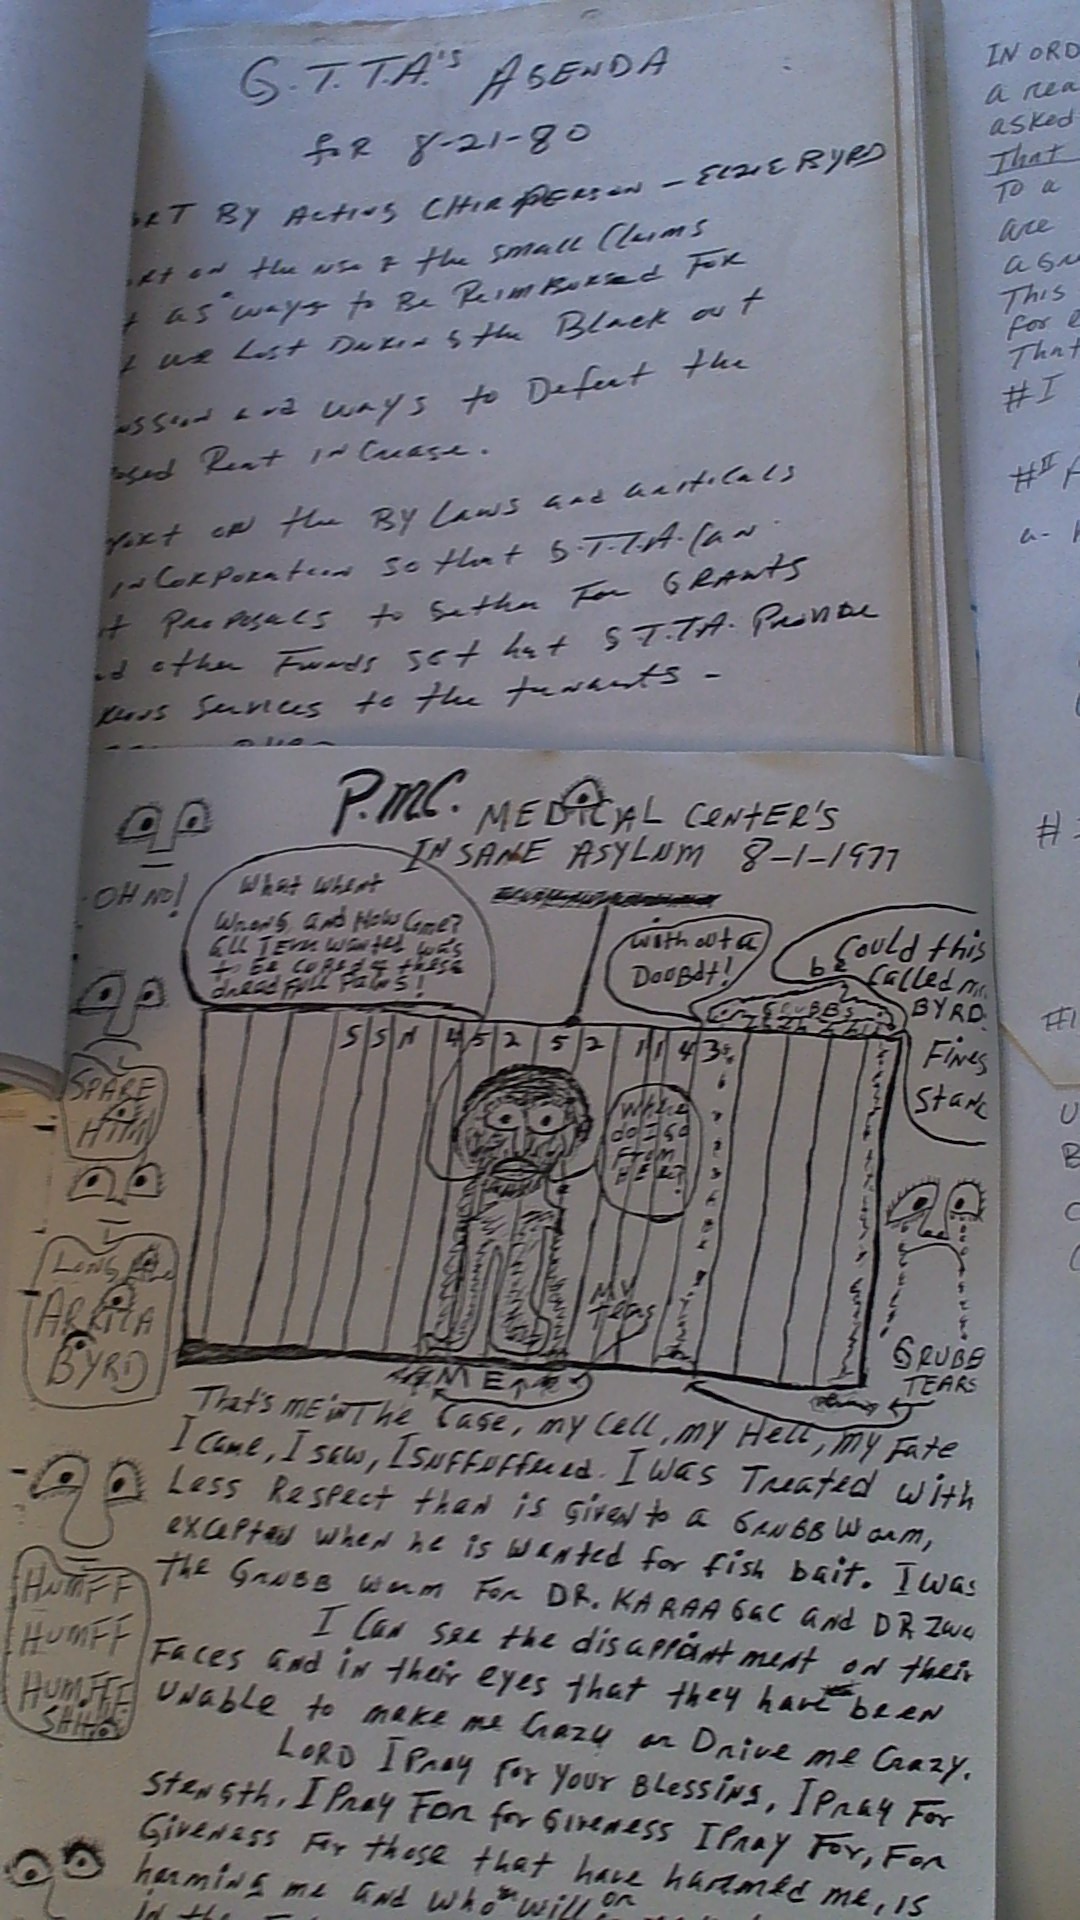 G.T.T.A.'s AGENDA
for 8-21-80
BY ACTING CHIRPERSON - ELZIE BYRD
on the use of the small Claims
as ways to Be Reimbursed For
we Lost During the Black out
and ways to Defeat the
Rent inCrease.
on the By Laws and
inCorporation so that G.T.T.A. Can
Proposals to Gether For GRANTS
other Funds so that G.T.T.A. Provide
Services to the tenants -
IN ORD
a rea
asked
That
To a
are
This
for
That
#I
#II
a-
P.M.C. MEDICAL CENTER'S
INSANE ASYLUM 8-1-1977
OH NO!
What Whent
Wrong, and How Come?
all I Ever wanted was
to be cured of these
dreadfull Pains!
without a
Doubdt!
Could this
be called mr.
BYRD.
Fines
Stanc
GRUBBS
S S N 4 5 2 5 2 1 1 4 3
SPARE
HIM
Where
do I go
From
HERE?
LONG
ARKITA
BYRD
MY
tears
GRUBB
TEARS
ME
That's ME in The Cage, my Cell, my Hell, my Fate
I Came, I saw, I Suffuffered. I was Treated with
Less Respect than is given to a GruBB Worm,
excepted when he is wanted for fish bait. I was
the GruBB Worm For DR. KARAAGAC and DR
I Can see the disappointment on their
Faces and in their eyes that they have been
unable to make me Crazy or Drive me Crazy.
LORD I Pray for your Blessing, I Pray For
Stength, I Pray For for Giveness I Pray For, For
Giveness For those that have haremed me, is
harming me and who will or
in the
HUMFF
HUMFF
HUMFFF
SHH